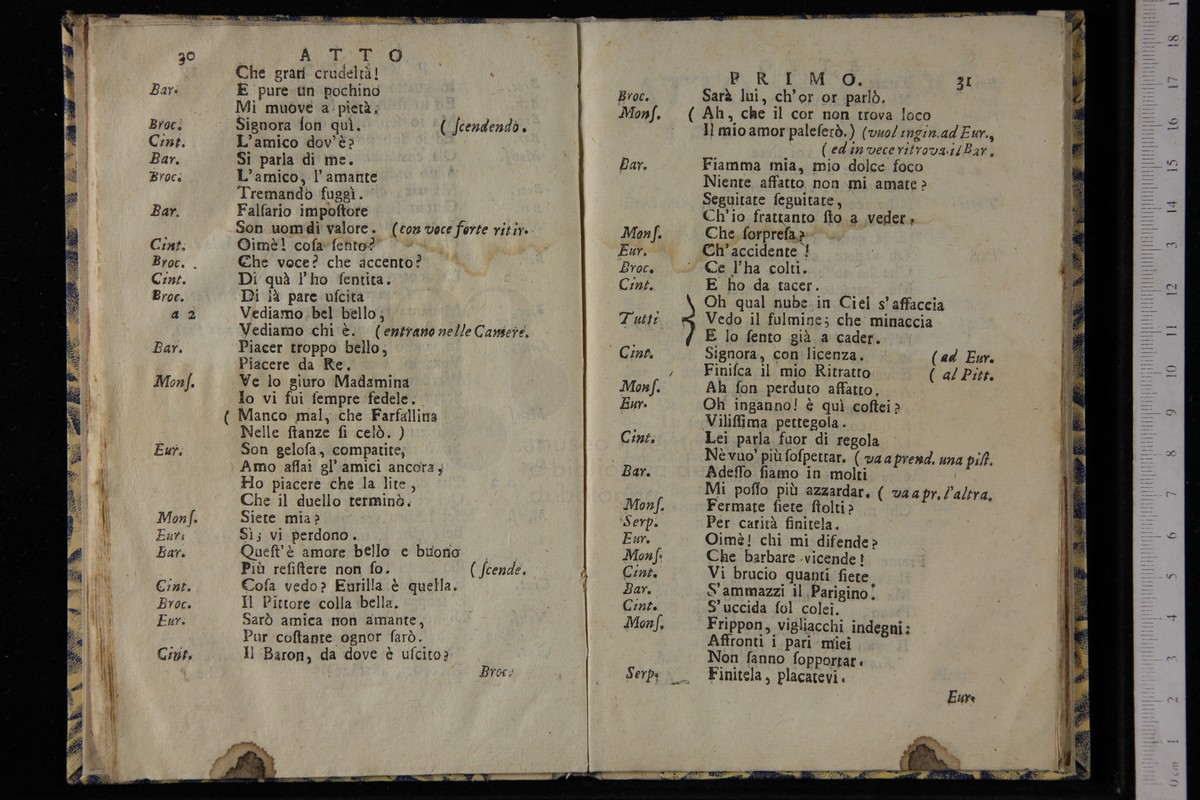 30 ATTO
Che gran crudeltà!
Bar. E pure un pochino
Mi muove a pietà.
Broc. Signora ſon quì. (ſcendendo.
Cint. L'amico dov'è?
Bar. Si parla di me.
Broc. L'amico, l'amante
Tremando fuggì.
Bar. Falſario impoſtore
Son uom di valore. (con voce forte ritir.
Cint. Oimè! coſa ſento?
Broc. Che voce? che accento?
Cint. Di quà l'ho ſentita.
Broc. Di là pare uſcita
a 2 Vediamo bel bello,
Vediamo chi è. (entrano nelle Camere.
Bar. Piacer troppo bello,
Piacere da Re.
Monſ. Ve lo giuro Madamina
Io vi fui ſempre fedele.
( Manco mal, che Farfallina
Nelle ſtanze ſi celò. )
Eur. Son geloſa, compatite,
Amo aſſai gl'amici ancora,
Ho piacere che la lite,
Che il duello terminò.
Monſ. Siete mia?
Eur. Sì, vi perdono.
Bar. Queſt'è amore bello e buono
Più reſiſtere non ſo. (ſcende.
Cint. Coſa vedo? Eurilla è quella.
Broc. Il Pittore colla bella.
Eur. Sarò amica non amante,
Pur coſtante ognor ſarò.
Cint. Il Baron, da dove è uſcito?
Broc.
PRIMO. 31
Broc. Sarà lui, ch'or or parlò.
Monſ. ( Ah, che il cor non trova loco
Il mio amor paleſerò.) (vuol ingin. ad Eur.,
( ed in vece ritrova il Bar.
Bar. Fiamma mia, mio dolce foco
Niente affatto non mi amate?
Seguitate ſeguitate,
Ch'io frattanto ſto a veder.
Monſ. Che ſorpreſa?
Eur. Ch'accidente!
Broc. Ce l'ha colti.
Cint. E ho da tacer.
Oh qual nube in Ciel s'affaccia
Tutti Vedo il fulmine; che minaccia
E lo ſento già a cader.
Cint. Signora, con licenza. (ad Eur.
Finiſca il mio Ritratto ( al Pitt.
Monſ. Ah ſon perduto affatto.
Eur. Oh inganno! è quì coſtei?
Viliſſima pettegola.
Cint. Lei parla fuor di regola
Nè vuo' più ſoſpettar. ( va a prend. una piſt.
Bar. Adeſſo ſiamo in molti
Mi poſſo più azzardar. ( va a pr. l'altra.
Monſ. Fermate ſiete ſtolti?
Serp. Per carità finitela.
Eur. Oimè! chi mi difende?
Monſ. Che barbare vicende!
Cint. Vi brucio quanti ſiete.
Bar. S'ammazzi il Parigino.
Cint. S'uccida ſol colei.
Monſ. Frippon, vigliacchi indegni:
Affronti i pari miei
Non ſanno ſopportar.
Serp. Finitela, placatevi.
Eur.